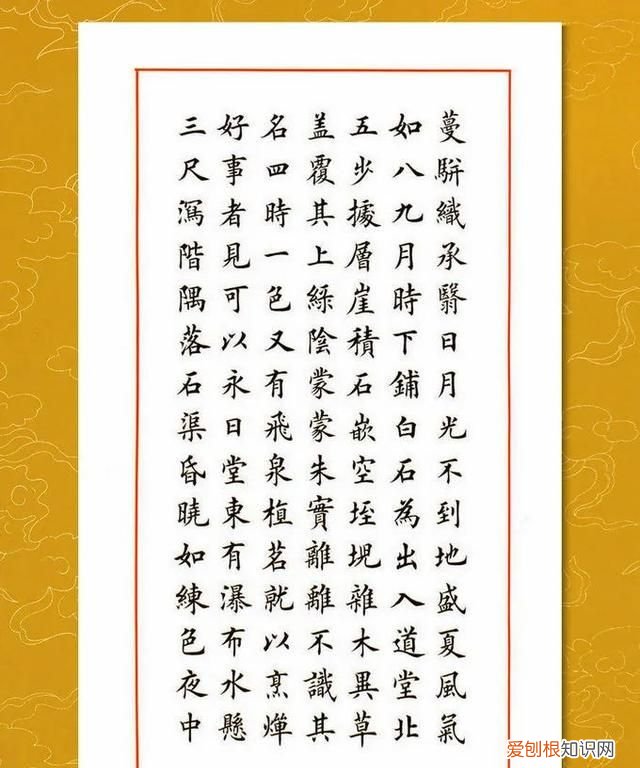 蔓駢織承翳日月光不到地盛夏風氣
如八九月時下鋪白石為出入道堂北
五步據層崖積石嵌空垤堄雜木異草
盖覆其上綠陰蒙蒙朱實離離不識其
名四時一色又有飛泉植茗就以烹燀
好事者見可以永日堂東有瀑布水懸
三尺瀉階隅落石渠昏曉如練色夜中
爱刨根知识网